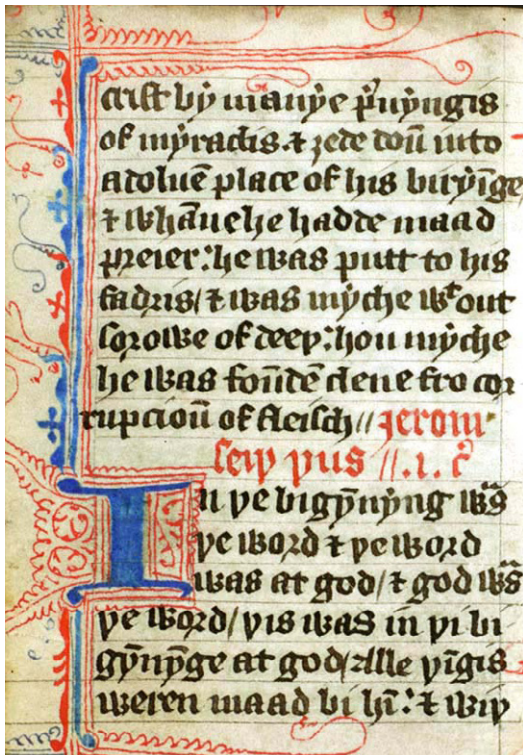 crist bẏ manẏe p̃uẏngis
of mẏraclis ⁊ ȝede doū into
a doluē place of his birẏīge
⁊ whāne he hadde maad
preier: he was putt to his
fadris/ ⁊ was mẏche wᵗout
sorowe of deeþ: hou mẏche
he was foūdē clene fro cor
rupcioū of fleisch // Jerom
seiþ þus // .i. c̃
In þe bigẏ̄nẏng wᵃs
þe word ⁊ þe word
was at god/ ⁊ god wᵃs
þe word/ þis was in þi bi
gẏ̄nẏ̄ge at god/ alle þīgis
weren maad bi hī: ⁊ wiþ